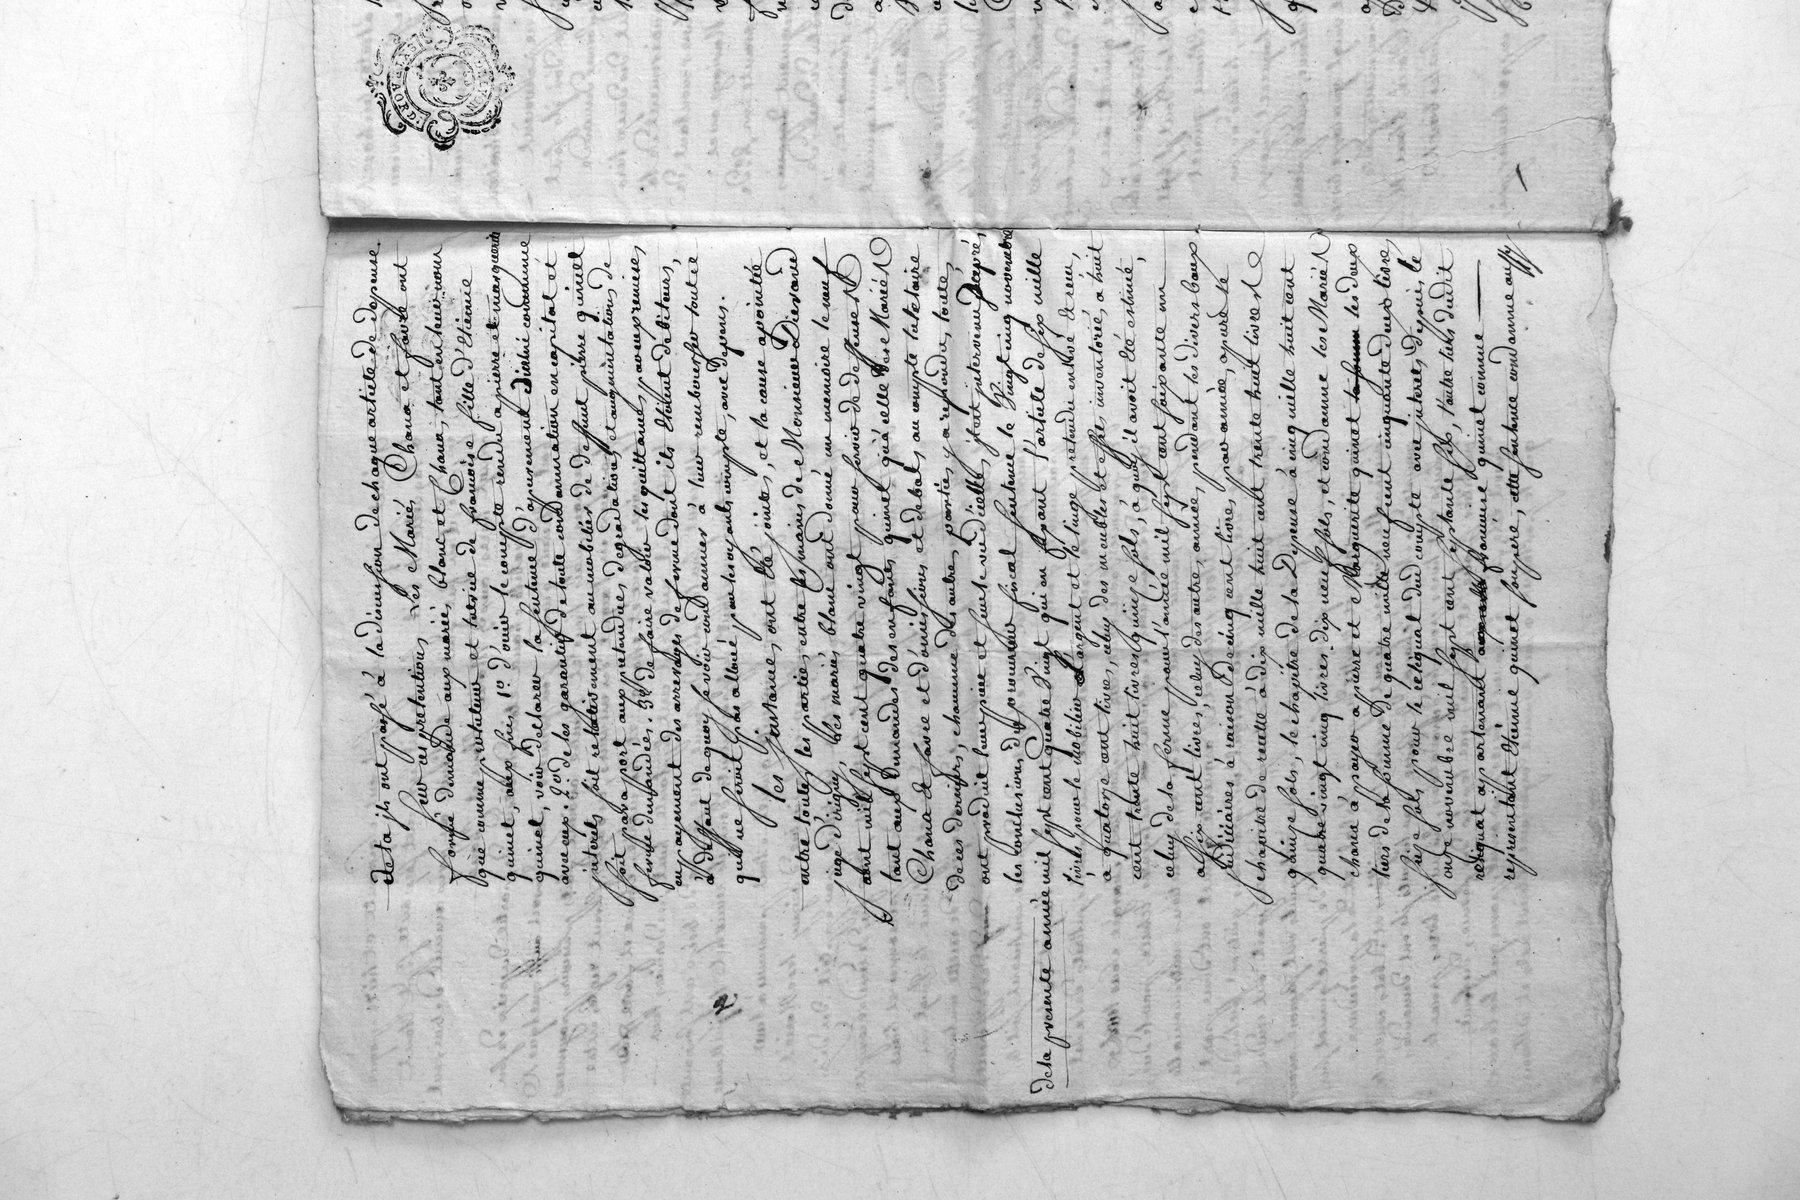 de la ils ont passé à la discussion de chaque article de depense.
Sur ces pretentions les Mariés Chana et favre ont
formé demande aux mariés blanc et Chana, tant en leur nom
que comme tuteur et tutrice de françoise fille d'Etienne
quinet, aux fins, 1º. d'ouir le compte rendu a pierre et marguerite
quinet, voir declarer la sentence d'apurement diceluy commune
avec eux. 2º. de les garantir de toute condamnation en capital et
interêts soit relativement au mobilier de deffunt pierre quinet
soit par raport aux pretendües degradations, et aux quittations de
ferme demandées. 3º. de faire valoir les quittances, par eux remises,
en payement des arrerages de ferme dont ils étoient débiteurs,
à deffaut de quoy se voir condamner à leur rembourser tout ce
qui ne seroit pas alloué par les oyants compte, avec depens.
les Instances, ont été jointes, et la cause apointée
entre toutes les parties, entre les mains de Monsieur Dieravd
juge d'irigny, les mariés blanc ont donné un memoire le neuf
aout mil sept cent quatre vingt pour servir de deffenses
tant aux demandes des enfants quinet qu'à celle des Mariés
Chana & favre et d'ouissances et debats au compte tutelaire
de ces derniers, chacune des autres parties y a repondu, toutes
ont produit leurs pieces et sur le vu d'icelles, il est intervenu Jaeprés
les conclusions du procureur fiscal sentence le vingt cinq novembre
de la presente année mil sept cent quatre vingt qui en fixant l'article de six mille
livres pour le mobilier l'argent et le linge pretendu entrivé & reçu,
à quatorze cent livres, celuy des meubles et effets inventoriés, a huit
cent trente huit livres quinze sols, à quoy il avoit été estimé,
celuy de la ferme pour l'année mil sept cent soixante un
a six cent livres, celuy des autres années, pendant les divers baux
judiciaires à raison de cinq cent livres, par année, apure le
chapitre de recette à dix mille huit cent trente huit livres
quinze sols, le chapitre de la Depense à cinq mille huit cent
quatre vingt cinq livres dix neuf sols, et condamne les Mariés
chana à payer a pierre et Marguerite quinet les deux
tiers de la somme de quatre mille neuf cent cinquante deux livres
seize sols pour le reliquat dud compte avec interets depuis le
onze novembre mil sept cent soixante six, l'autre tiers dudit
reliquat apartenant françoise quinet comme
representant Etienne quinet son pere, cette sentence condamne aussy